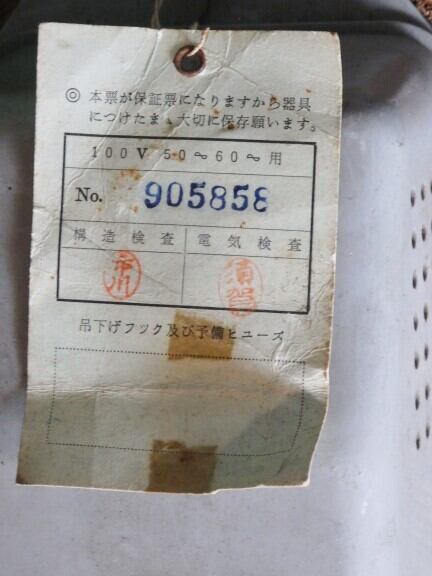 ◎ 本票が保証票になりますから器具
につけたまゝ大切に保存願います。
100V 50~60~用
No. 905858
構造検査 電気検査
市川 須賀
吊下げフック及び予備ヒューズ